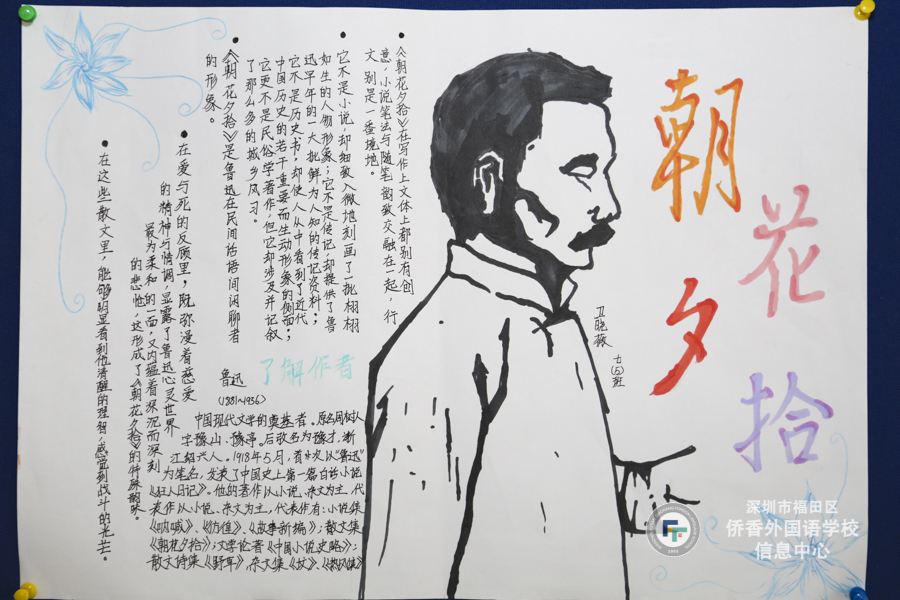 朝
花
夕
拾
卫晓薇
七(5)班
•《朝花夕拾》在写作上文体上都别有创
意,小说笔法与随笔韵致交融在一起,行
文别是一番境地。
•它不是小说,却细致入微地刻画了一批栩栩
如生的人物形象;它不是传记,却提供了鲁
迅早年的一大批鲜为人知的传记资料;
它不是历史书,却使人从中看到了近代
中国历史的若干重要而生动形象的侧面;
它更不是民俗学著作,但它却涉及并记叙
了那么多的城乡风习。
•《朝花夕拾》是鲁迅在民间话语间闲聊者
的形象。
•在爱与死的反质里,既弥漫着慈爱
的精神与情调,显露了鲁迅心灵世界
最为柔和的一面,又内蕴着深沉而深刻
的悲怆,这形成了《朝花夕拾》的特殊韵味。
•在这些散文里,能够明显看到他清醒的理智,感觉到战斗的光芒。
了解作者
鲁迅
(1881~1936)
中国现代文学的奠基者。原名周树人
字豫山、豫亭。后改名为豫才,浙
江绍兴人。1918年5月,首次以"鲁迅"
为笔名,发表了中国史上第一篇白话小说
《狂人日记》。他的著作以小说、杂文为主,代
表作以小说、杂文为主,代表作有:小说集
《呐喊》、《彷徨》、《故事新编》;散文集
《朝花夕拾》;文学论著《中国小说史略》;
散文诗集《野草》,杂文集《坟》、《热风集》
深圳市福田区
侨香外国语学校
信息中心